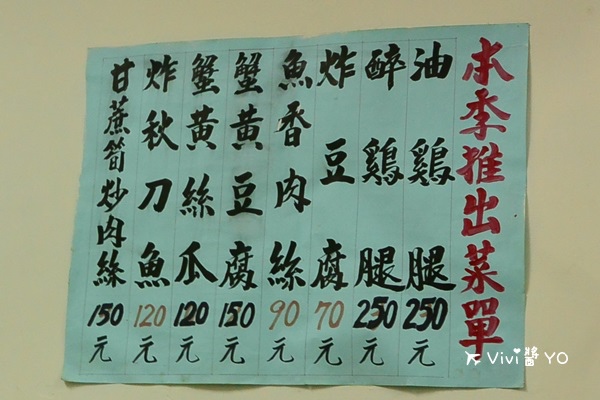 本季推出菜單
油雞腿250元
醉雞腿250元
炸豆腐70元
魚香肉絲90元
蟹黃豆腐150元
蟹黃絲瓜120元
炸秋刀魚120元
甘蔗筍炒肉絲150元
Vivi醬YO